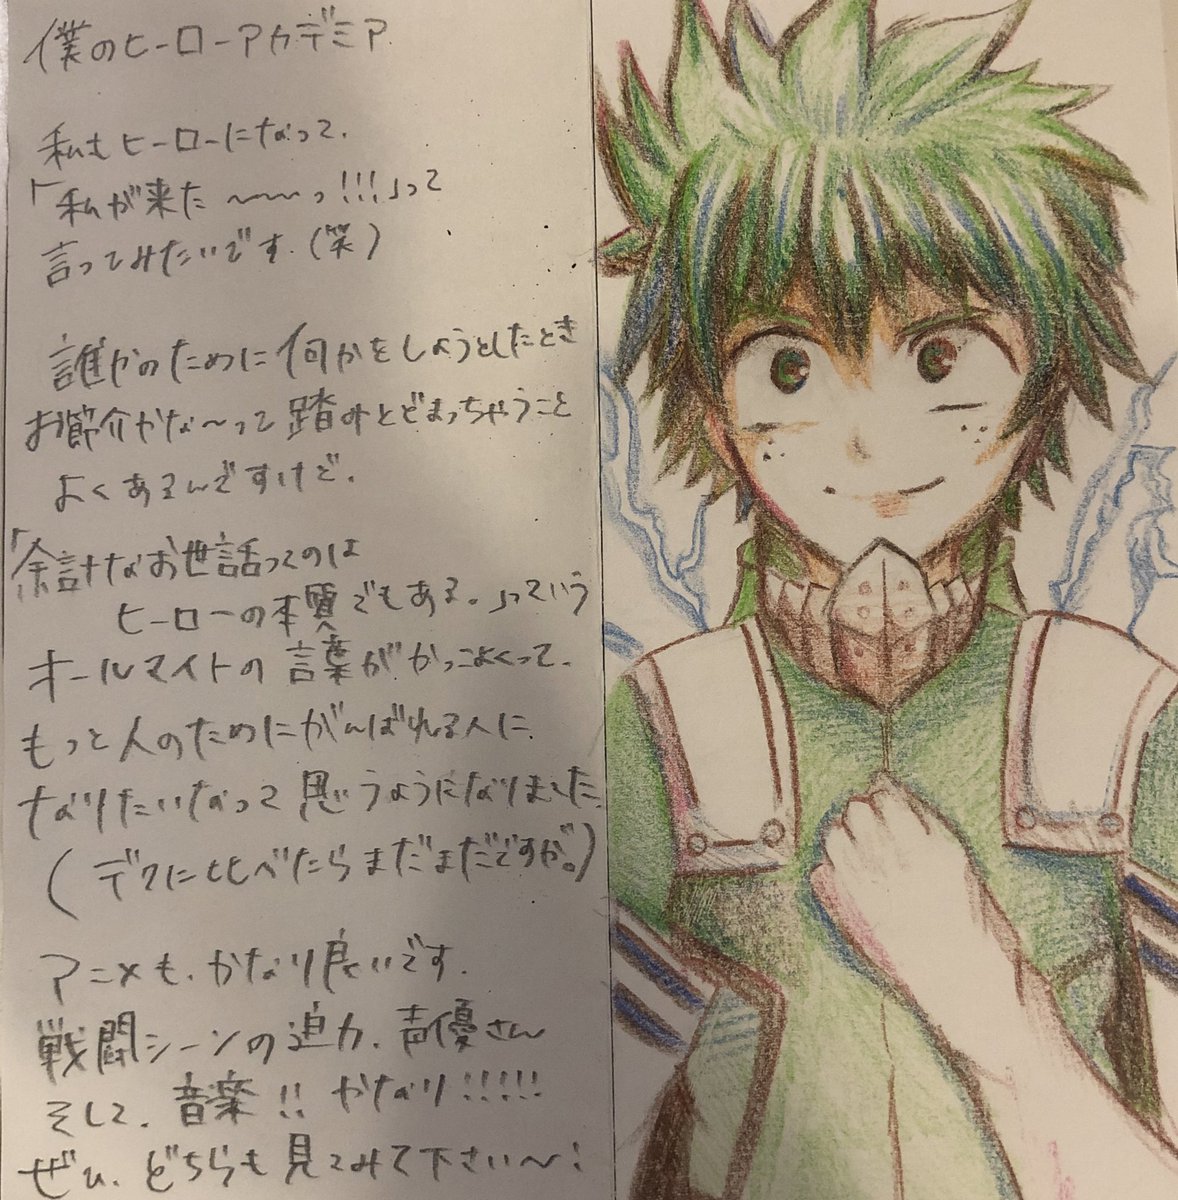 僕のヒーローアカデミア
私もヒーローになって、
「私が来た～～っ!!!」って
言ってみたいです.(笑)
誰かのために何かをしようとしたとき
お節介かな～って踏みとどまっちゃうこと
よくあるんですけど、
「余計なお世話ってのは
ヒーローの本質でもある。」っていう
オールマイトの言葉がかっこよくって、
もっと人のためにがんばれる人に、
なりたいなって思うようになりました。
(デクに比べたらまだまだですが。)
アニメも、かなり良いです.
戦闘シーンの迫力、声優さん
そして、音楽!! かなり!!!!!
ぜひ、どちらも見てみて下さい～!